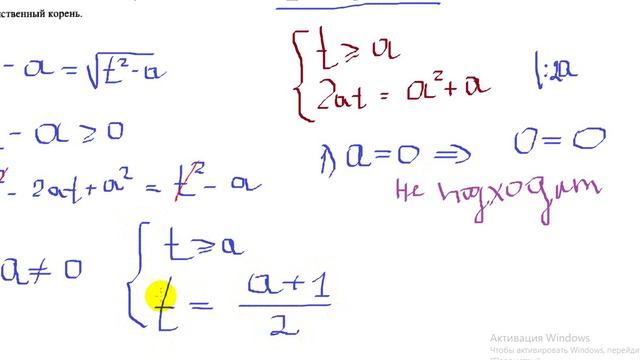 ственный корень.
- a = √(t² - a)
- a ≥ 0
² - 2at + a² = t² - a
{ t ≥ a
2at = a² + a
|:2a
1) a = 0 ⇒ 0 = 0
Не подходит
a ≠ 0
{ t ≥ a
t = (a + 1)/2
Активация Windows
Чтобы активировать Windows, перейди